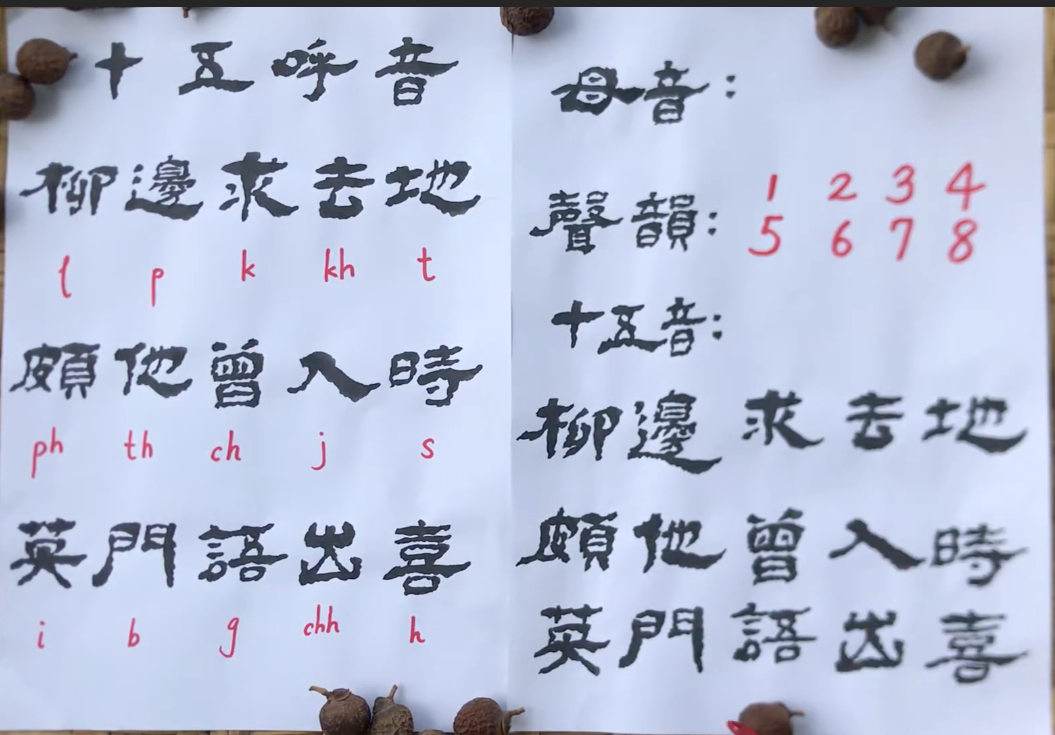 十五呼音
柳邊求去地
l p k kh t
頗他曾入時
ph th ch j s
英門語出喜
i b g chh h
母音:
聲韻: 1 2 3 4
5 6 7 8
十五音:
柳邊求去地
頗他曾入時
英門語出喜